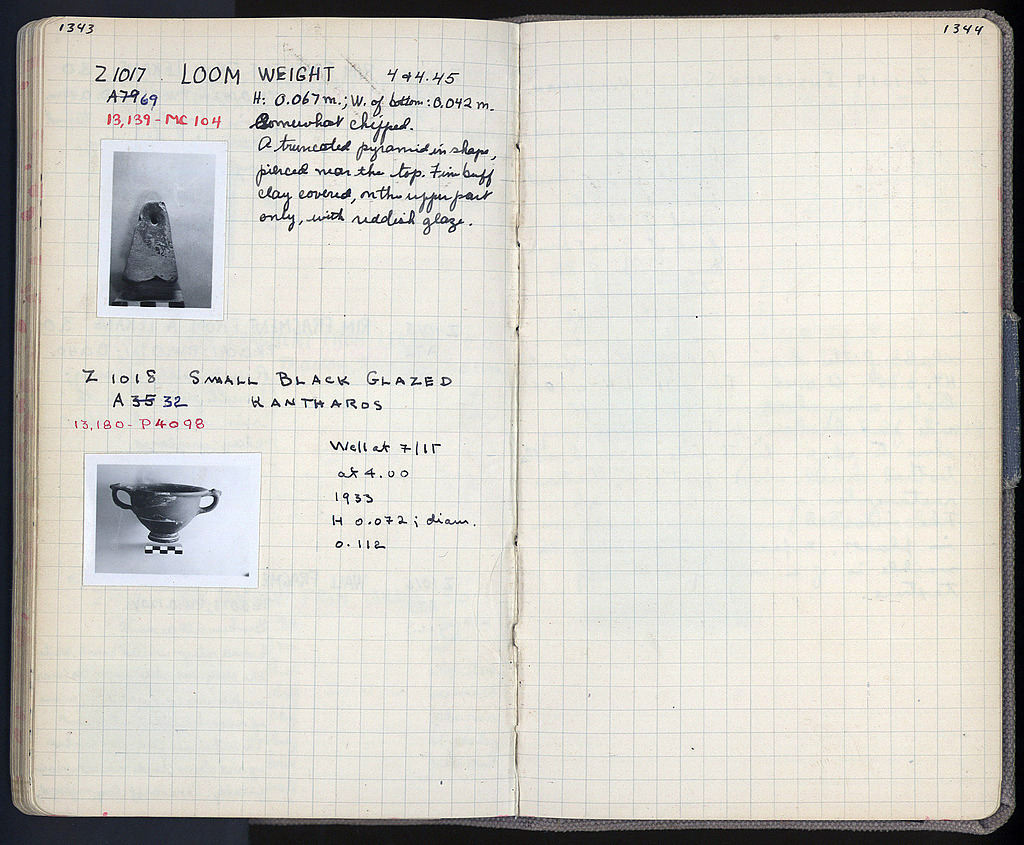 1343
1344
Z 1017 LOOM WEIGHT 4 & 4.45
A7969
H: 0.067 m.; W. of bottom: 0.042 m.
13,139 - MC 104
Somewhat chipped.
A truncated pyramid in shape,
pierced near the top. Fine buff
clay covered, on the upper part
only, with reddish glaze.
Z 1018 SMALL BLACK GLAZED
A 35 32 KANTHAROS
13,180 - P 4098
Well at 7/ΙΓ
at 4.00
1933
H 0.072; diam.
0.112